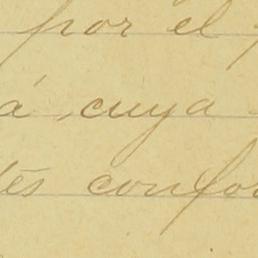 por el
á, cuya
tés confor